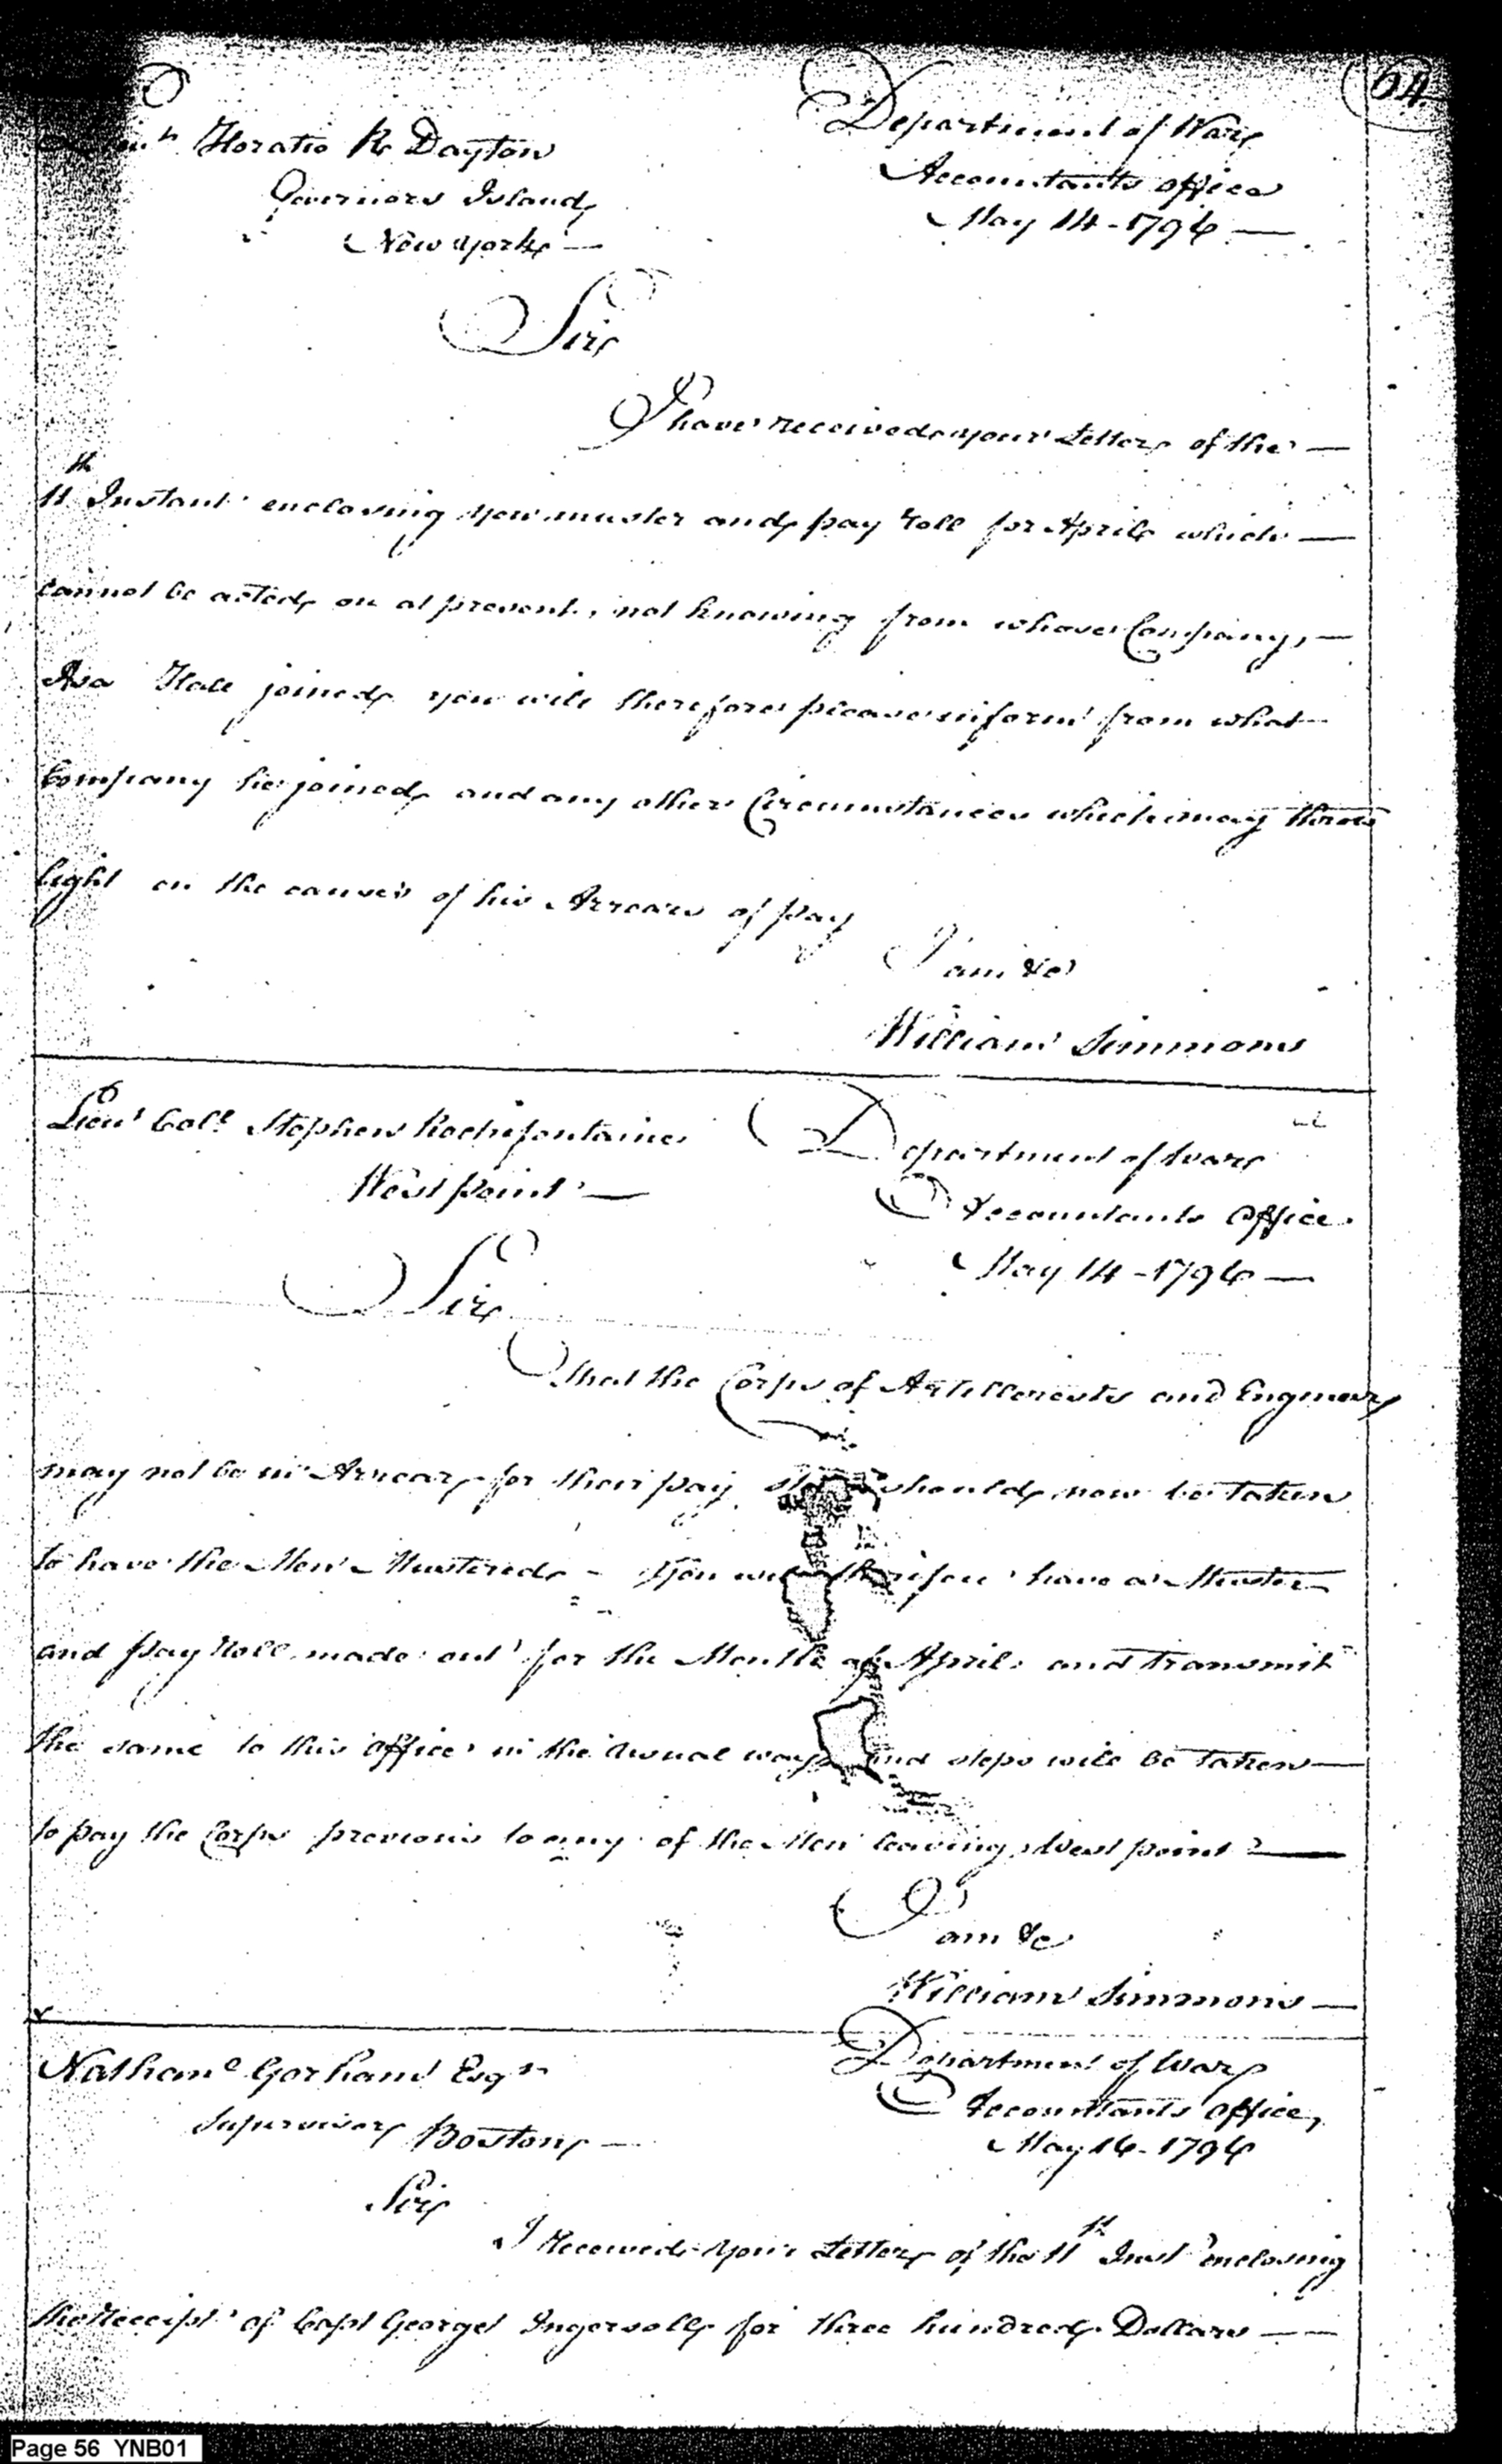 64
Horatio R Dayton
Governors Island
New York —
Department of War
Accountants office
May 14 - 1796 —
Sir
I have received your Letter of the —
11th Instant enclosing your muster and pay roll for April which —
cannot be acted on at present, not knowing from whose Company, —
Asa Hall joined you will therefore please inform from what
Company he joined and any other Circumstances which may throw
light on the causes of his Arrears of pay
I am &c
William Simmons
Lieut Colo Stephen Rochefontaine
West point —
Department of War
Accountants Office
May 14 - 1796 —
Sir
That the Corps of Artillerests and Engineers
may not be in Arrears for their pay should now be taken
to have the Men Mustered - You will therefore have a Muster
and pay Roll made out for the Month of April and transmit
the same to this Office in the usual way and steps will be taken —
to pay the Corps previous to any of the Men leaving West point —
I am &c
William Simmons —
Nathanl Gorham Esqr
Supervisor Boston —
Department of War
Accountants office,
May 16 - 1796
Sir
I Received your Letter of the 11th Inst enclosing
the Receipt of Capt George Ingersoll for three hundred Dollars — —
Page 56 YNB01